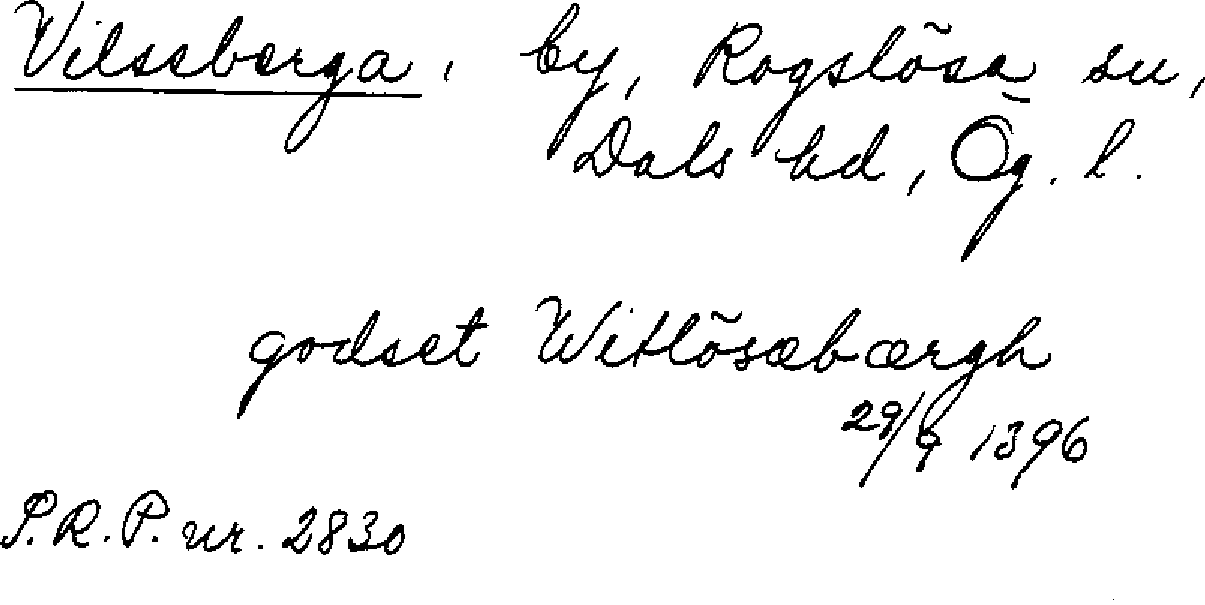 Vilseberga, by, Rogslösa sn,
Dals hd, Ög. l.
godset Witlösæbærgh
29/9 1396
P.R.P. nr. 2830